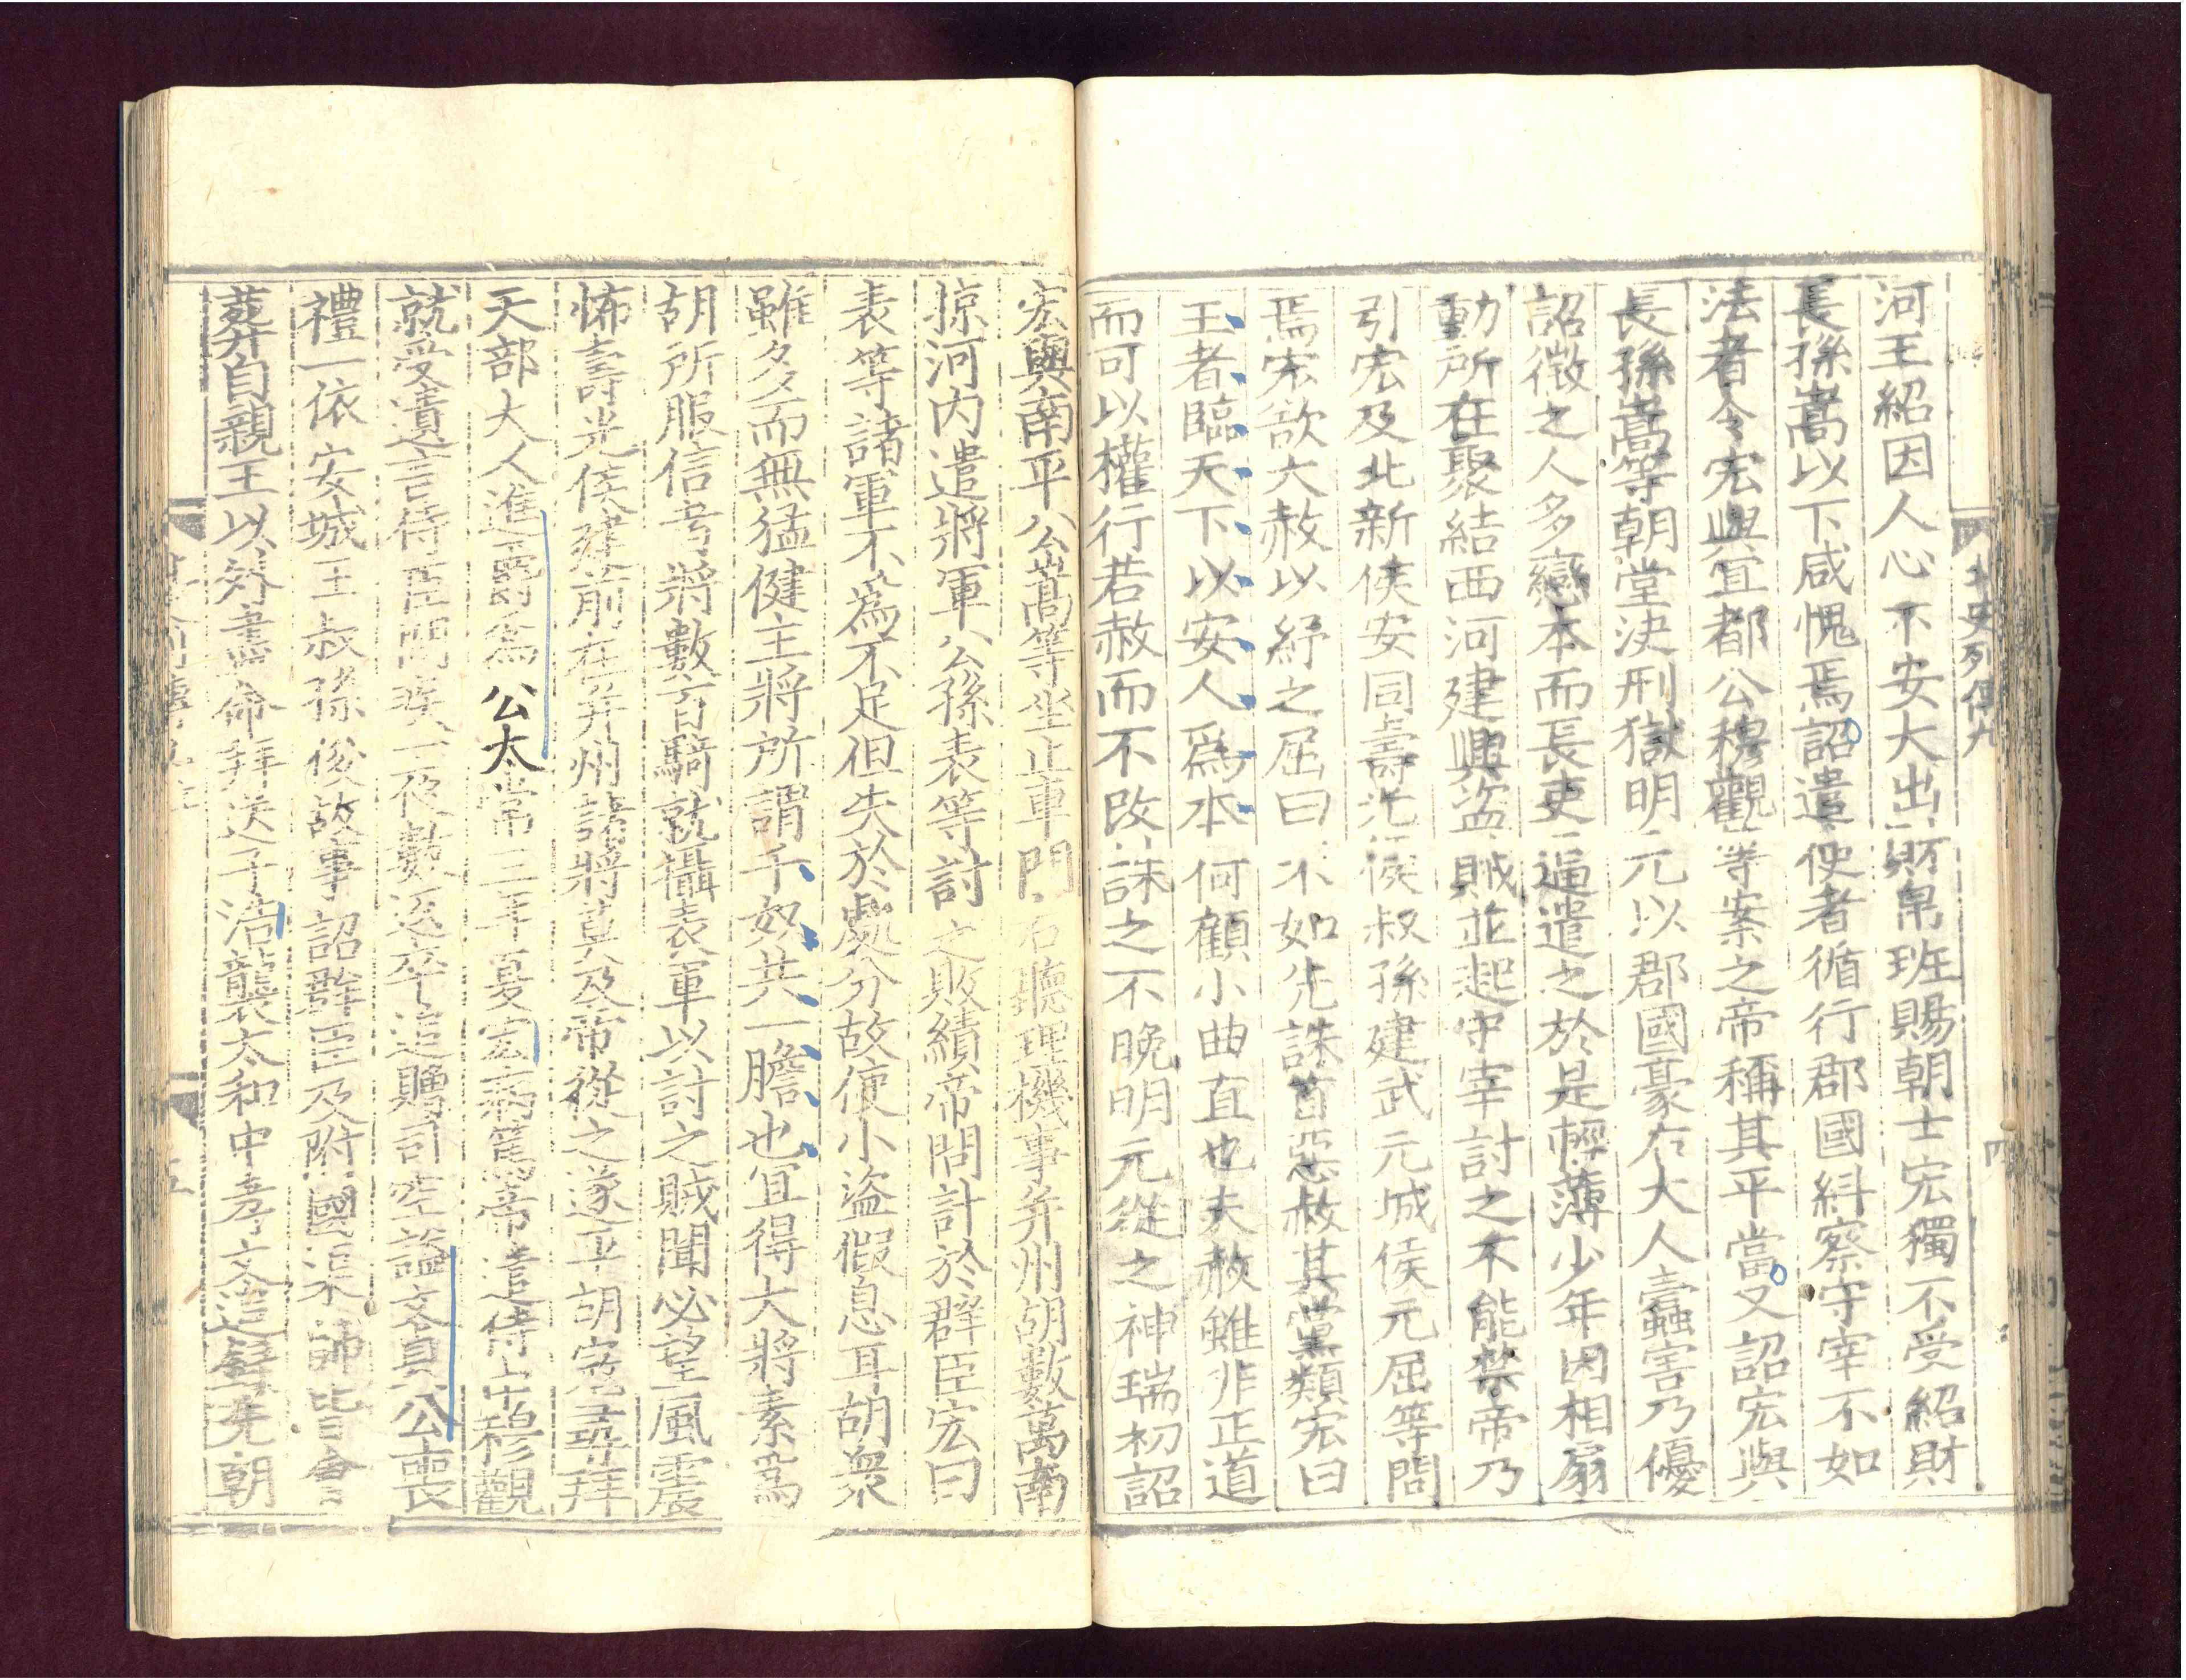 北史列傳九
四
河王紹因人心不安大出財帛班賜朝士宏獨不受紹財
長孫嵩以下咸愧焉詔遣使者循行郡國糾察守宰不如
法者令宏與宜都公穆觀等案之帝稱其平當又詔宏與
長孫嵩等朝堂決刑獄明元以郡國豪右大人蠧害乃優
詔徵之人多戀本而長吏逼遣之於是輕薄少年因相扇
動所在聚結西河建興盜賊並起守宰討之不能禁帝乃
引宏及北新侯安同壽光侯叔孫建武元城侯元屈等問
焉宏欲大赦以紓之屈曰不如先誅首惡赦其黨類宏曰
王者臨天下以安人爲本何顧小曲直也夫赦雖非正道
而可以權行若赦而不改誅之不晩明元從之神瑞初詔
宏與南平公嵩等坐止車門右聽理機事并州胡數萬南
掠河内遣將軍公孫表等討之敗績帝問計於群臣宏曰
表等諸軍不爲不足但失於處分故使小盜假息耳胡衆
雖多而無猛健主將所謂千奴共一膽也宜得大將素爲
胡所服信者將數百騎就攝表軍以討之賊聞必望風震
怖壽光侯建前在并州諸將莫及帝從之遂平胡寇尋拜
天部大人進爵爲公太常三年夏宏病篤帝遣侍中穆觀
就受遺言侍臣問疾一夜數返卒追贈司空謚文貞公喪
禮一依安城王叔孫俊故事詔群臣及附國渠帥皆會
葬自親王以外盡命拜送子浩襲太和中孝文追録先朝